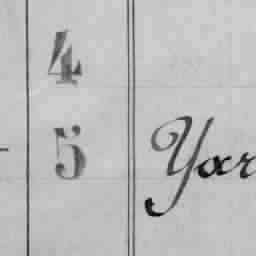 4
5 Yar